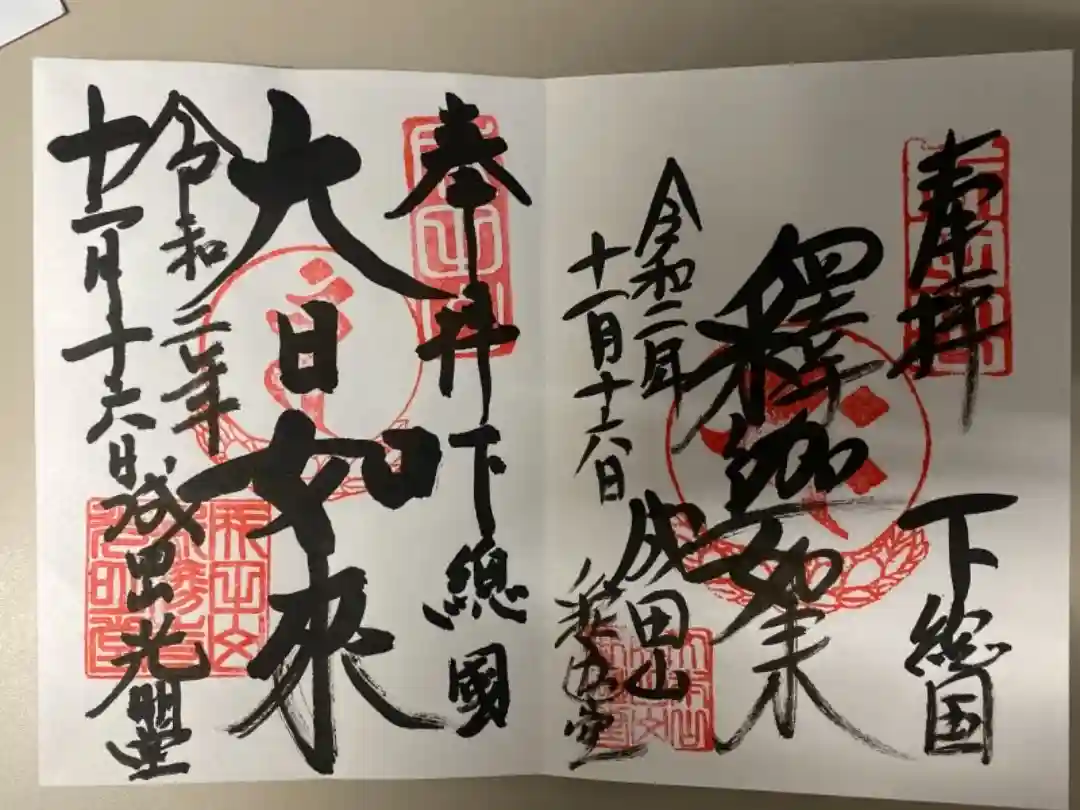 奉拝 下総国
釋迦如来
令和二年 成田山
十一月十六日 釈迦堂
奉拝 下總國
大日如來
令和二年
十一月十六日 成田光明堂